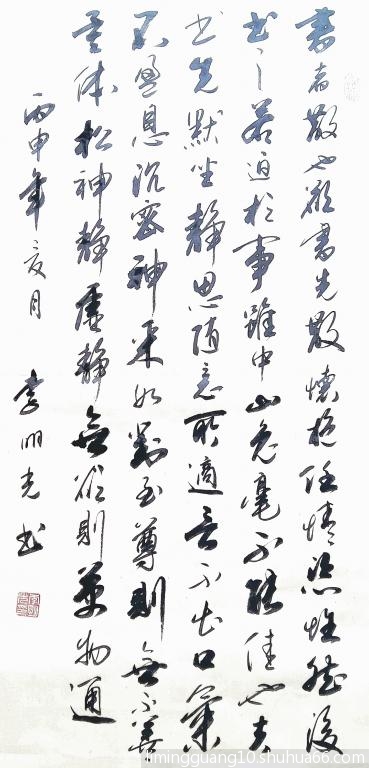 書者散也欲書先散懷抱任情恣性然後
书之若迫於事雖中山兔毫不能佳也夫
书先默坐靜思随意所適言不出口氣
不盈息沉密神采如對至尊則無不善
体松神靜虛靜無欲則萬物通
丙申年夏月 李明光书
limingguang10.shuhua66.com